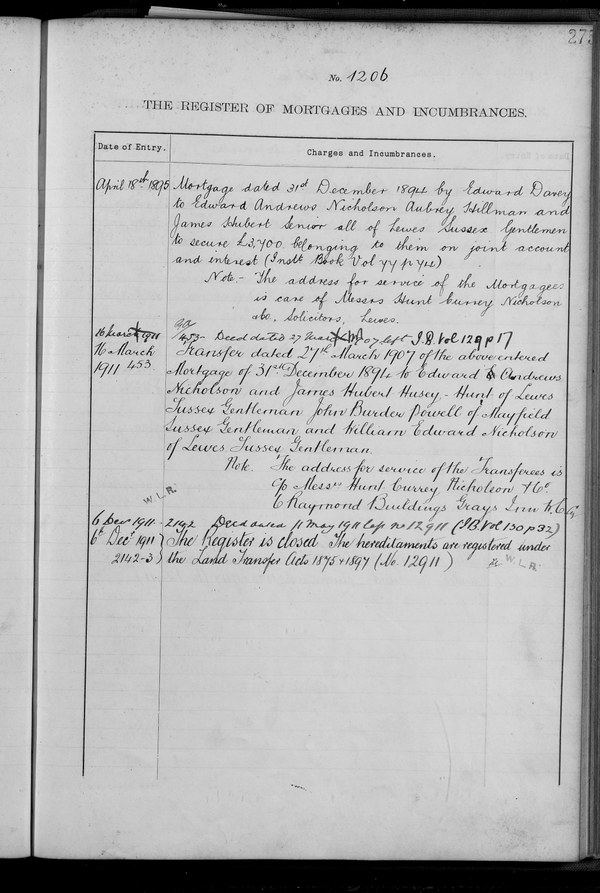 273
No. 1206
THE REGISTER OF MORTGAGES AND INCUMBRANCES.
Date of Entry.
Charges and Incumbrances.
April 18th 1895 Mortgage dated 31st December 1894 by Edward Davey
to Edward Andrews Nicholson Aubrey Hillman and
James Hubert Senior all of Lewes Sussex Gentlemen
to secure £3,700 belonging to them on joint account
and interest (Instt Book Vol 44 p 74)
Note - The address for service of the Mortgagees
is care of Messrs Hunt Currey Nicholson
&Co. Solicitors, Lewes.
16 March 1911 453 - Deed dated 27 March 1907 left I.B. Vol 129 p 17
16 March Transfer dated 27th March 1907 of the above entered
1911 453 Mortgage of 31st December 1894 to Edward Andrews
Nicholson and James Hubert Husey-Hunt of Lewes
Sussex Gentleman John Burder Powell of Mayfield
Sussex Gentleman and William Edward Nicholson
of Lewes Sussex Gentleman.
Note. The address for service of the Transferees is
c/o Messrs Hunt Currey Nicholson & Co
6 Raymond Buildings Grays Inn W.C.
W.L.R.
6 Decr 1911 - 2142 Deed dated 11 May 1911 left no 12911 (I.B. Vol 130 p 32)
6th Decr 1911 The Register is closed The hereditaments are registered under
2142-3) the Land Transfer Acts 1875 & 1897 (No. 12911)
W.L.R.